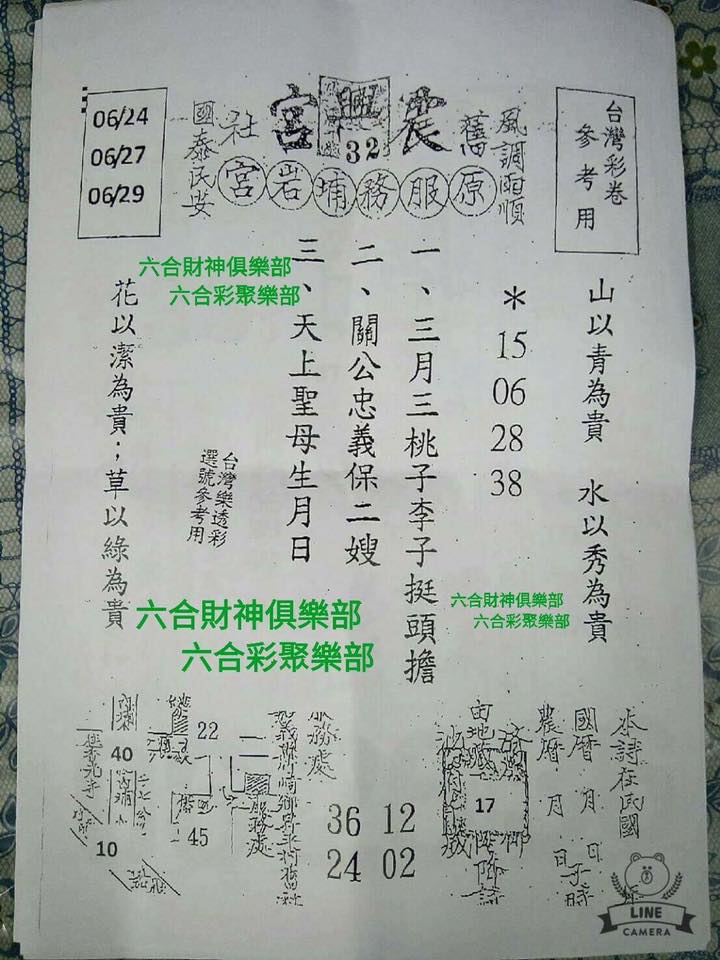 台灣彩卷
參考用
風調雨順
舊
震興宮
32
社
國泰民安
原服務埔岩宮
06/24
06/27
06/29
山以青為貴 水以秀為貴
＊15 06 28 38
一、三月三桃子李子挺頭擔
二、關公忠義保二嫂
三、天上聖母生月日
台灣樂透彩
選號參考用
花以潔為貴；草以綠為貴
六合財神俱樂部
六合彩聚樂部
六合財神俱樂部
六合彩聚樂部
六合財神俱樂部
六合彩聚樂部
本詩在民國
國曆 月 日
農曆 月 日子時
17
36 12
24 02
服務處
服務處
22
40
45
10
LINE
CAMERA